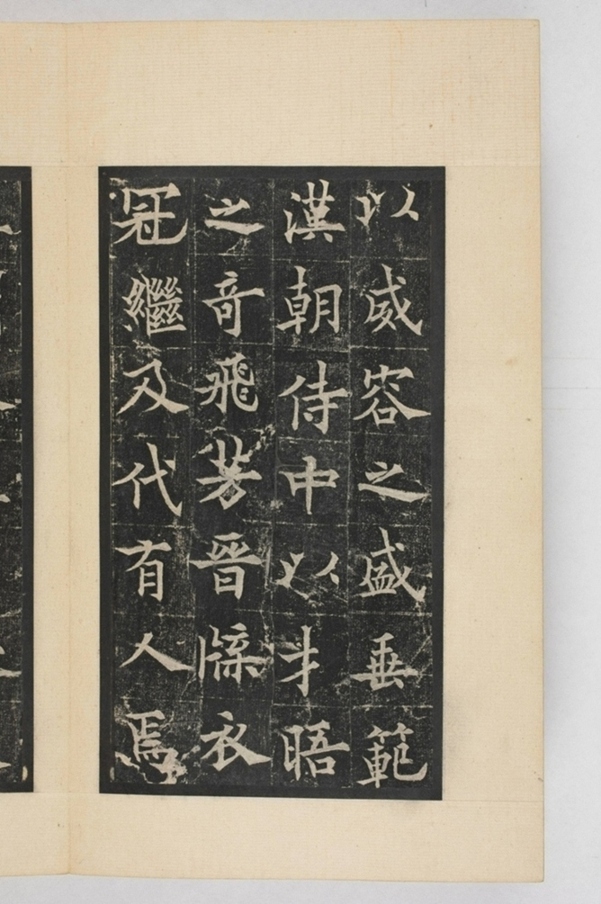 以威容之盛垂範
漢朝侍中以才晤
之奇飛芳晉牒衣
冠繼及代有人焉